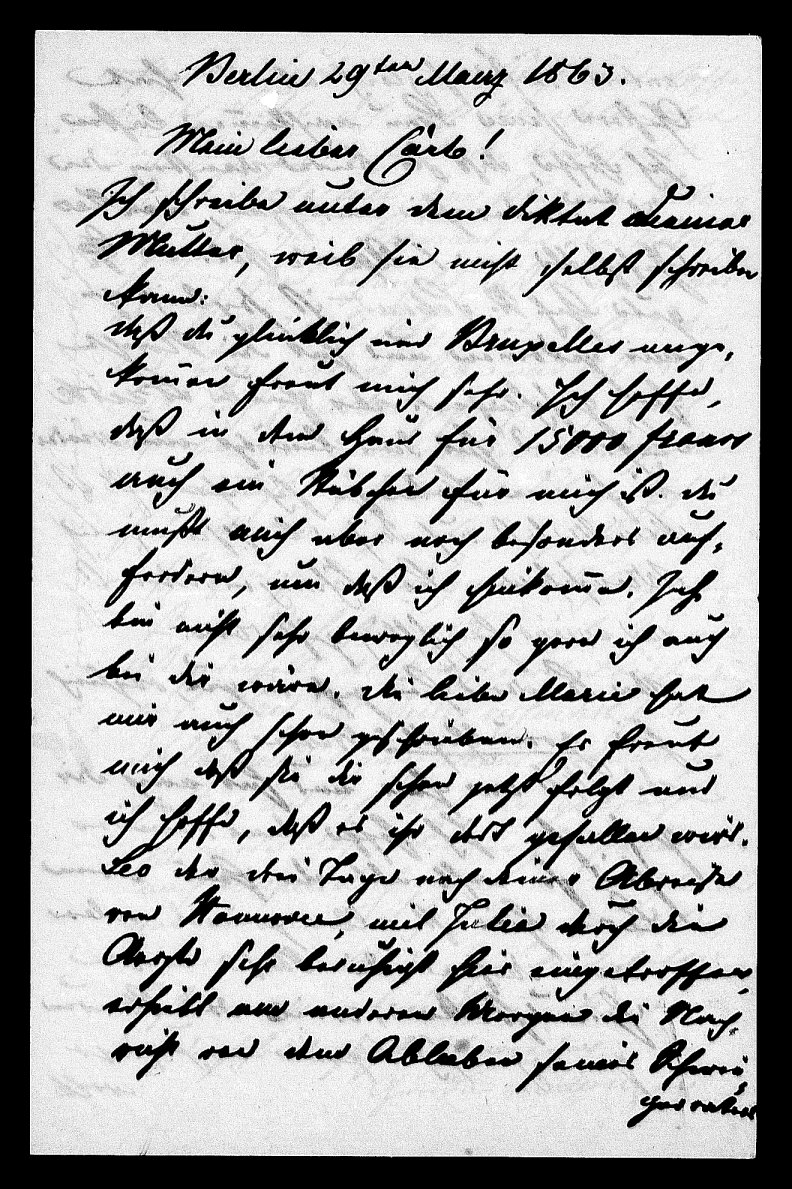 Berlin 29ten Maerz 1863.
Mein lieber Carl!
Ich schreibe unter dem Diktat Deiner
Mutter, weil sie nicht selbst schreiben
kann:
daß du glücklich in Bruxelles ange,
kommen freut mich sehr. Ich hoffe,
daß in dem Haus für 15000 francs
auch ein Stübchen für mich ist. du
mußt mich aber noch besonders auf,
fordern, um daß ich hinkomme. Ich
bin nicht sehr beweglich so gern ich auch
bei dir wäre. Die liebe Marie hat
mir auch schon geschrieben. Es freut
mich daß sie dir schon jetzt folgt und
ich hoffe, daß es ihr dort gefallen wird.
Leo der drei Tage nach deiner Abreise
von Hannover, mit Julie durch die
Aerzte sehr beruhigt hier eingetroffen,
erhielt am anderen Morgen die Nach,
richt von dem Ableben seines Schwie
gervaters